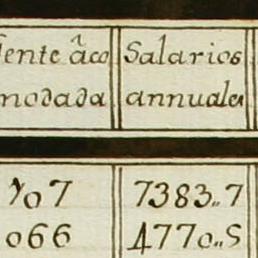 ente áco Salarios
modada annuales
707 7383..7
066 4770..5